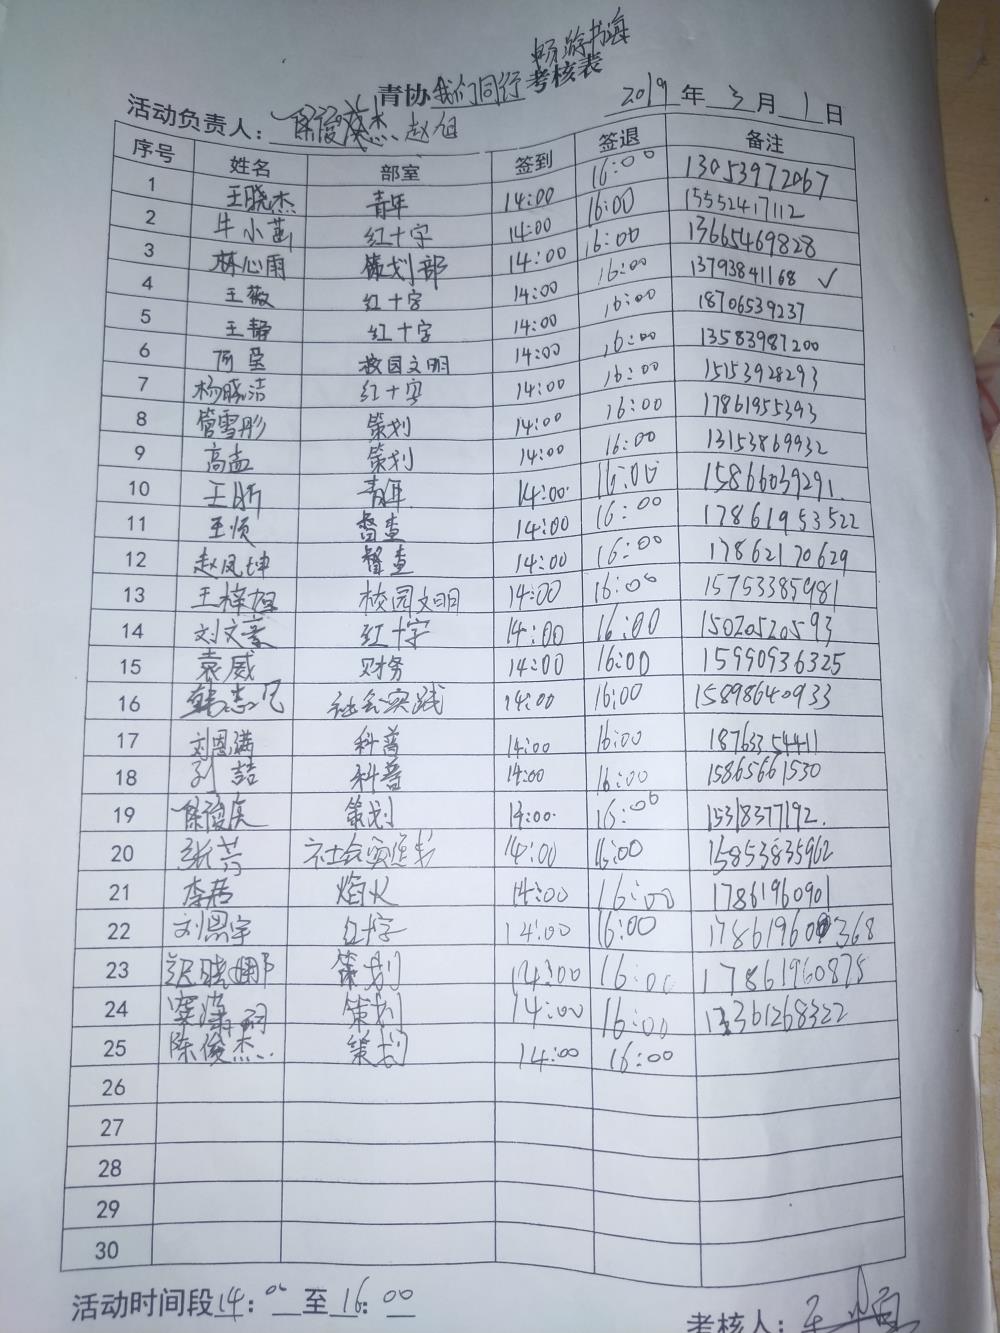 畅游书海
青协 我们同行 考核表
2019 年 3 月 1 日
活动负责人： 陈俊杰 赵旭
序号 姓名 部室 签到 签退 备注
1 王晓杰 青年 14:00 16:00 13053972067
2 牛小茜 红十字 14:00 16:00 15552417112
3 林心雨 策划部 14:00 16:00 13665469828
4 王薇 红十字 14:00 16:00 13793841168 ✓
5 王静 红十字 14:00 16:00 18706539237
6 校园文明 14:00 16:00 13583987200
7 杨晓洁 红十字 14:00 16:00 15153928293
8 管雪彤 策划 14:00 16:00 17861955393
9 高孟 策划 14:00 16:00 13153869932
10 王昕 青年 14:00 16:00 15866039291.
11 王顺 督查 14:00 16:00 17861953522
12 赵凤坤 督查 14:00 16:00 17862170629
13 王梓旭 校园文明 14:00 16:00 15753385981
14 刘文豪 红十字 14:00 16:00 15020520593
15 袁威 财务 14:00 16:00 15990936325
16 韩志凡 社会实践 14:00 16:00 15898640933
17 刘恩满 科普 14:00 16:00 18763354411
18 科普 14:00 16:00 15865661530
19 策划 14:00 16:00 15318377192.
20 张芳 社会实践 14:00 16:00 15853835962
21 李君 焰火 14:00 16:00 17861960901
22 刘恩宇 红十字 14:00 16:00 17861960368
23 迟晓娜 策划 14:00 16:00 17861960875
24 策划 14:00 16:00 13361268322
25 陈俊杰. 策划 14:00 16:00
26
27
28
29
30
活动时间段 14：00 至 16：00
考核人：